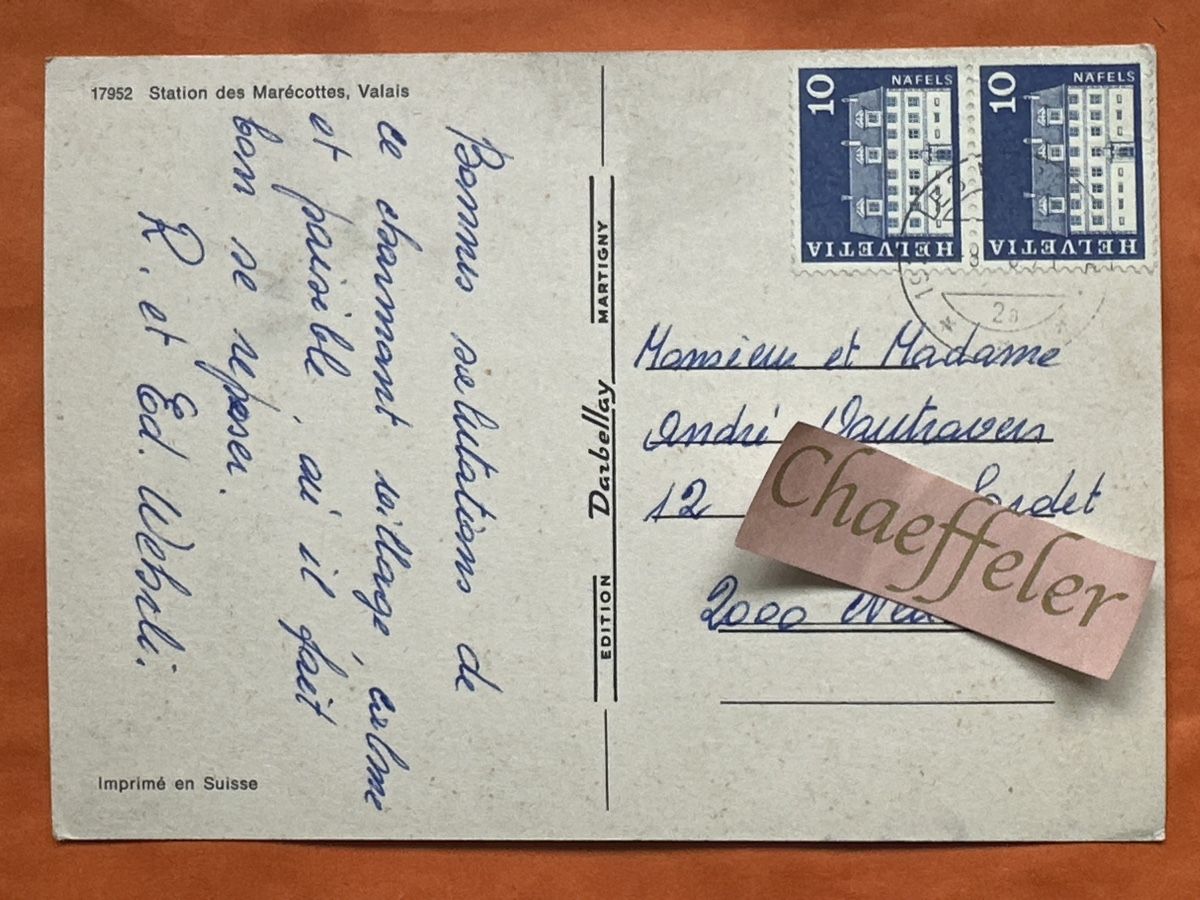 17952 Station des Marécottes, Valais
Bonnes salutations de
ce charmant village, calme
et paisible, où il fait
bon se reposer.
R. et Ed. Wehrli.
Imprimé en Suisse
EDITION Darbellay MARTIGNY
10 NÄFELS
HELVETIA
10 NÄFELS
HELVETIA
2a
Monsieur et Madame
André Vautravers
12
2000
Chaeffeler